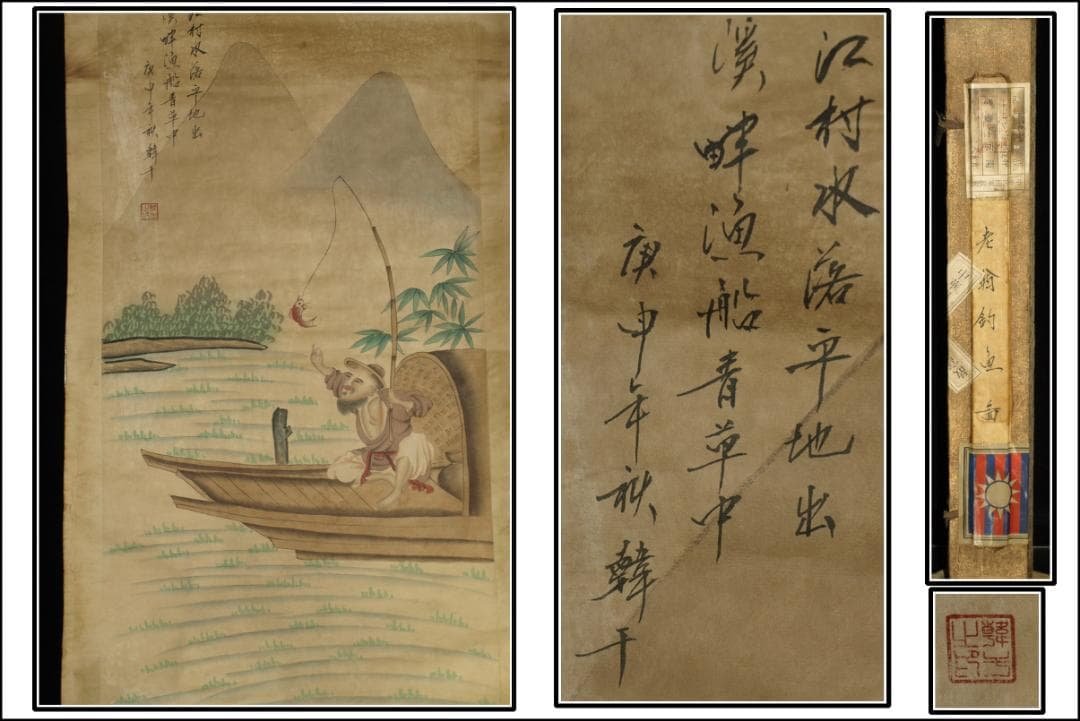 江村水落平地出
溪畔漁船青草中
庚申年秋韓干
江村水落平地出
溪畔漁船青草中
庚申年秋韓干
老翁釣魚
韓干
之印